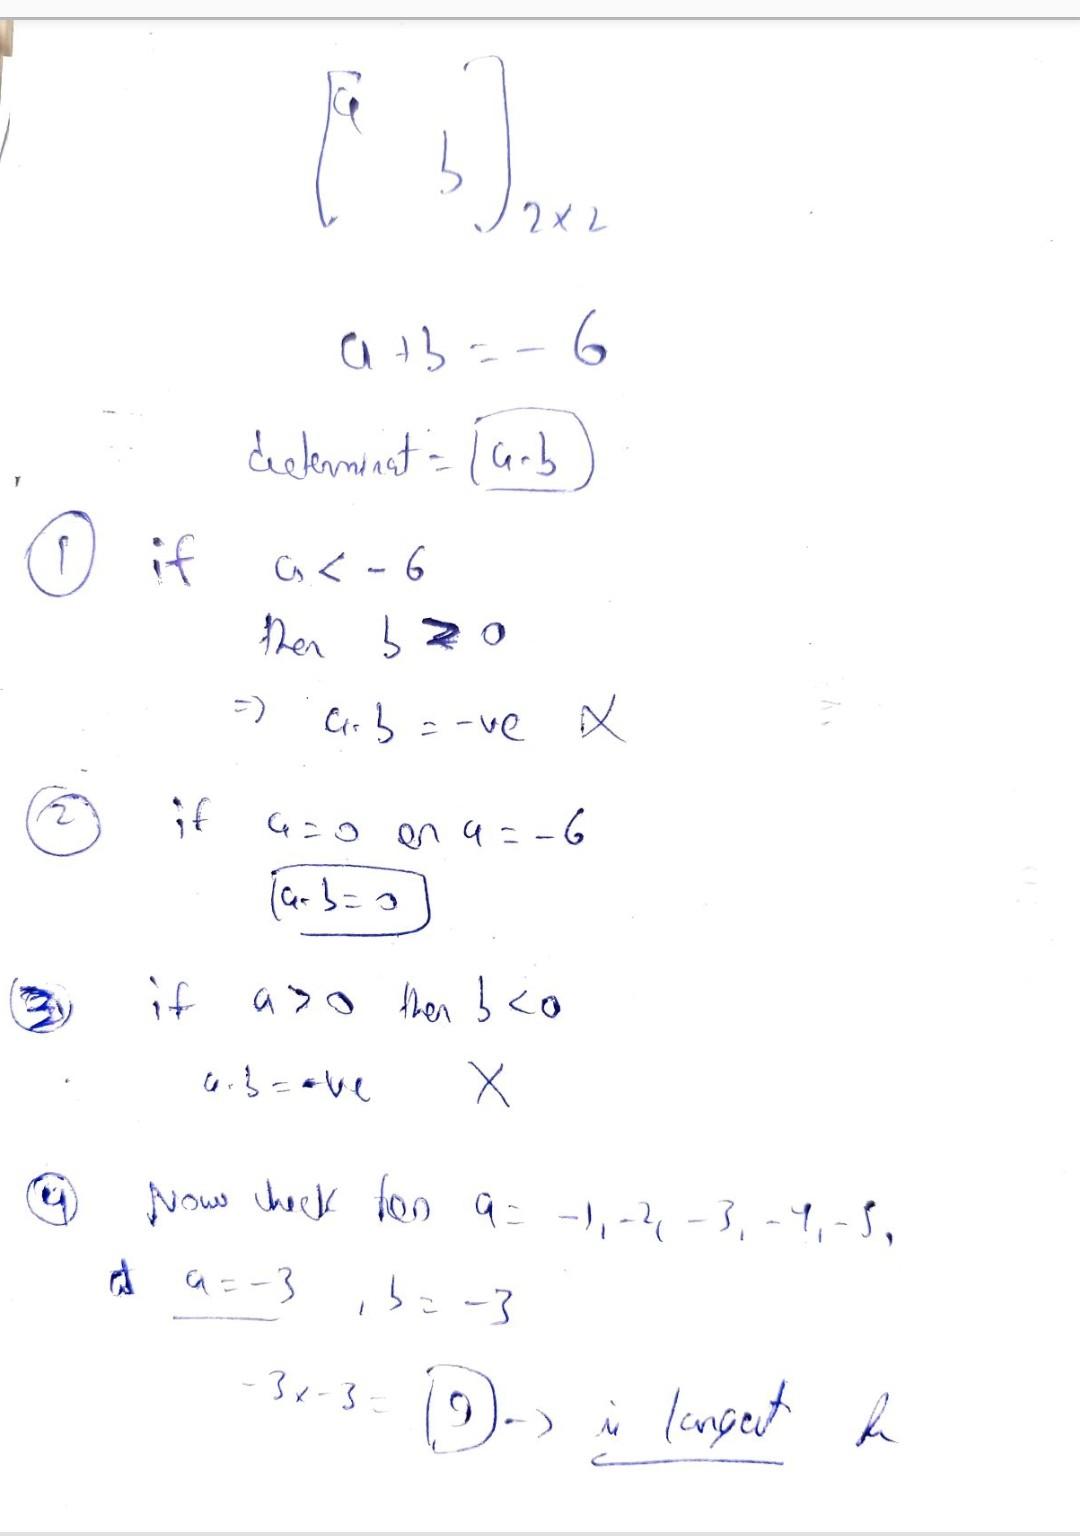 [a
b]2×2
a+b = -6
determinat = a.b
① if a < -6
then b ≥ 0
=) a.b = -ve X
② if a=0 or a=-6
a.b=0
③ if a>0 then b<0
a.b = -ve X
④ Now check for a= -1, -2, -3, -4, -5,
a=-3, b= -3
-3×-3 = 9 -> is largest